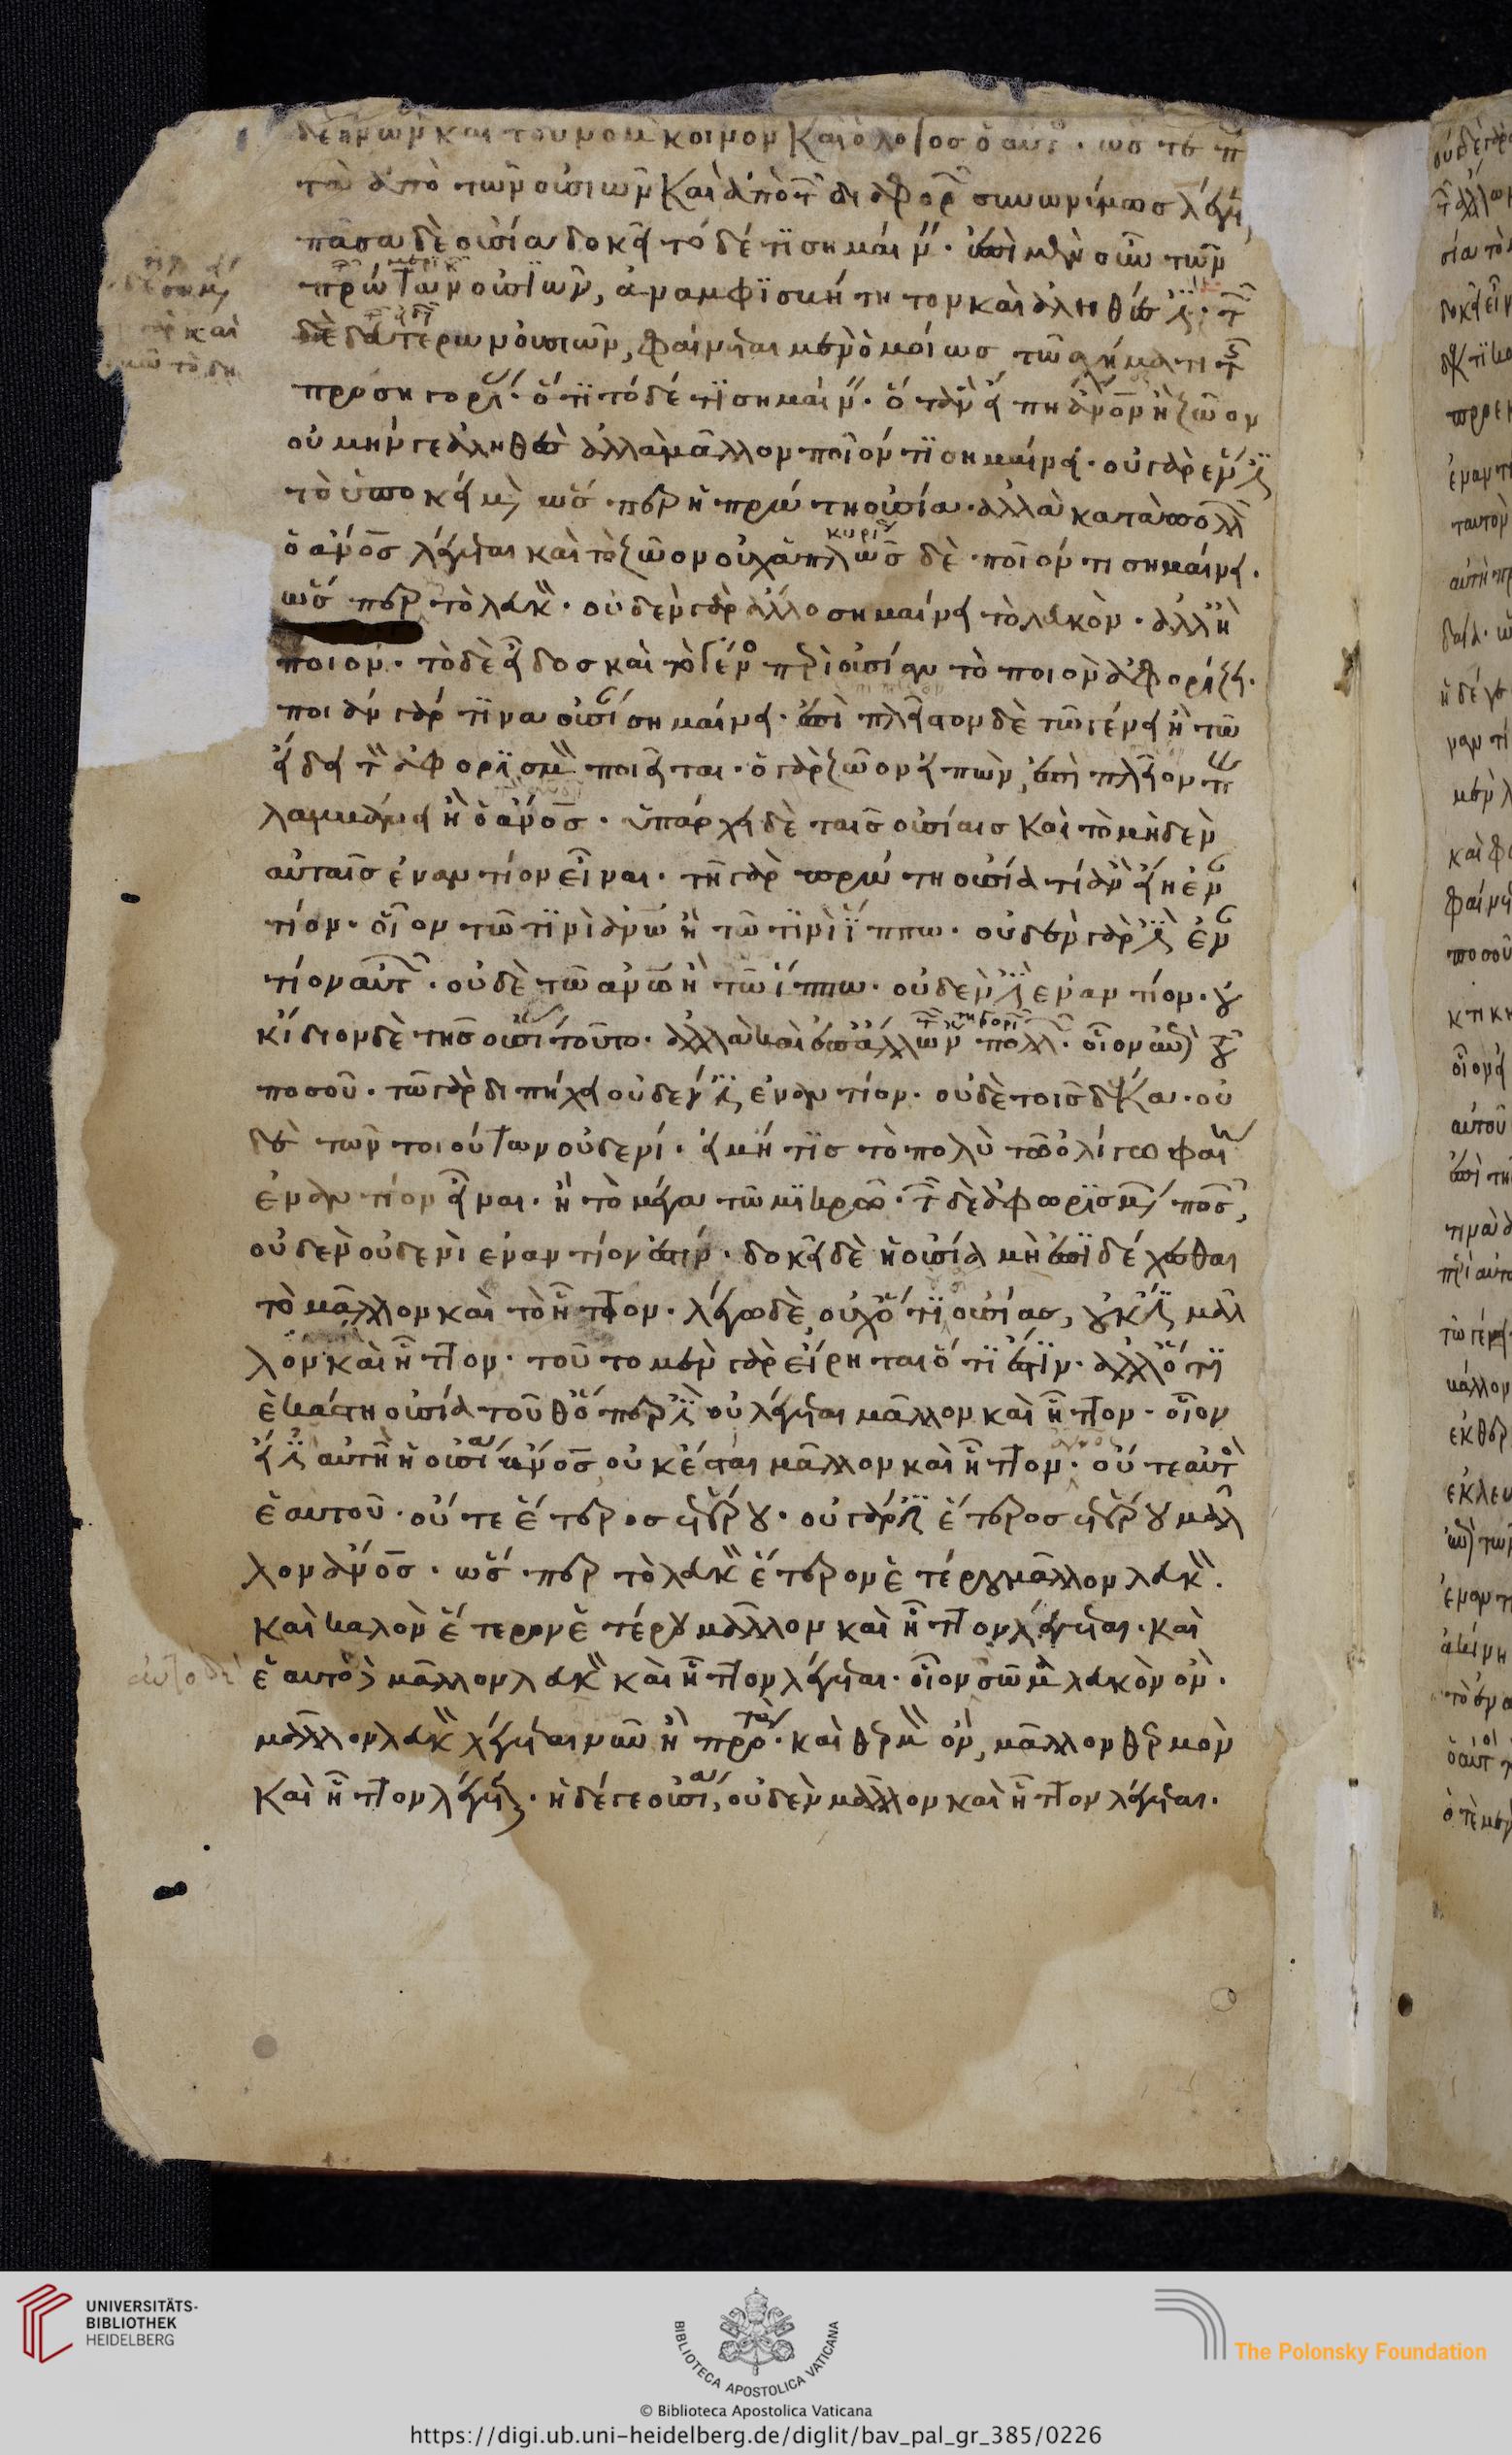 δὲ ἦν ὧν καὶ τοὔνομα κοινὸν καὶ ὁ λόγος ὁ αὐτ. ὥστε π
τὰ ἀπὸ τῶν οὐσιῶν καὶ ἀπὸ τ διαφορ συνωνύμως λέγε
πᾶσα δὲ οὐσία δοκεῖ τόδέ τι σημαίν. ἐπὶ μὲν οὖν τῶν
πρώτων οὐσιῶν, ἀναμφισβήτητον καὶ ἀληθές ἐστι. τ
δὲ δευτέρων οὐσιῶν, φαίνεται μὲν ὁμοίως τῶ σχήματι τ
προσηγορί. ὅτι τόδέ τι σημαίν. ὅταν εἴπη ἄνον ἢ ζῶον
οὐ μήν γε ἀληθὲς ἀλλὰ μᾶλλον ποῖόν τι σημαίνει. οὐ γὰρ ἕν ἐστι
τὸ ὑποκείμ ὥσπερ ἡ πρώτη οὐσία. ἀλλὰ κατὰ πολλ
ὁ ἄνος λέγεται καὶ τὸ ζῶον οὐχ ἁπλῶς δὲ ποῖόν τι σημαίνει.
ὥσπερ τὸ λευκ. οὐδὲν γὰρ ἄλλο σημαίνει τὸ λευκὸν. ἀλλ ἢ
ποιον. τὸ δὲ εἶδος καὶ τὸ γένο περὶ οὐσίαν τὸ ποιὸν ἀφορίζει.
ποιὰν γάρ τινα οὐσί σημαίνει. ἐπὶ πλεῖστον δὲ τῶ γένει ἢ τῶ
εἴδει τ ἀφορισμ ποιεῖται. ὁ γὰρ ζῶον εἰπὼν, ἐπὶ πλεῖον π
λαμβάνει ἢ ὁ ἄνος. ὑπάρχει δὲ ταῖς οὐσίαις καὶ τὸ μηδὲν
αὐταῖς ἐναντίον εἶναι. τῆ γὰρ πρώτη οὐσία τί ἂν εἴη ἐν
τίον. οἷον τῶ τινὶ ἀνω ἢ τῶ τινὶ ἵππω. οὐδὲν γάρ ἐστι ἐν
τίον αὐτ. οὐδὲ τῶ ανω ἢ τῶ ἵππω. οὐδὲν ἐστι ἐναντίον. οὐ
κ ἴδιον δὲ τῆς οὐσί τοῦτο. ἀλλὰ καὶ ἐπ ἄλλων πολλ. οἷον ἐπὶ τοῦ
ποσοῦ. τῶ γὰρ διπήχει οὐδέν ἐστι ἐναντίον. οὐδὲ τοῖς δέκα. οὐ
δὲ τῶν τοιούτων οὐδενί. εἰ μή τις τὸ πολὺ τῶ ὀλίγω φαί
ἐναντίον εἶναι. ἢ τὸ μέγα τῶ μικρῶ. τ δὲ ἀφωρισμ ποσ,
οὐδὲν οὐδενὶ ἐναντίον ἐστίν. δοκεῖ δὲ ἡ οὐσία μὴ ἐπιδέχεσθαι
τὸ μᾶλλον καὶ τὸ ἧττον. λέγω δὲ, οὐχ ὅτι οὐσίας, οὐκ ἔστι μᾶλ
λον καὶ ἧττον. τοῦτο μὲν γὰρ εἴρηται ὅτι ἐστίν. ἀλλ ὅτι
ἑκάστη οὐσία τοῦθ ὅπερ ἐστὶ οὐ λέγεται μᾶλλον καὶ ἧττον. οἷον
εἰ ἔστι αὐτὴ ἡ οὐσία ἄνος οὐκ ἔσται μᾶλλον καὶ ἧττον. οὔτε αὐτ
ἑαυτοῦ. οὔτε ἕτερος ἑτέρου. οὐ γάρ ἐστι ἕτερος ἑτέρου μᾶλ
λον ἄνος. ὥσπερ τὸ λευκ ἕτερον ἑτέρου μᾶλλον λευκ.
καὶ καλὸν ἕτερον ἑτέρου μᾶλλον καὶ ἧττον λέγεται. καὶ
ἑαυτοῦ μᾶλλον λευκ καὶ ἧττον λέγεται. οἷον σῶμα λευκὸν ὂν.
μᾶλλον λευκ λέγεται νῦν ἢ πρό. καὶ θερμ ὂν, μᾶλλον θερμὸν
καὶ ἧττον λέγεται. ἡ δέ γε οὐσία, οὐδὲν μᾶλλον καὶ ἧττον λέγεται.
UNIVERSITÄTS-
BIBLIOTHEK
HEIDELBERG
BIBLIOTECA APOSTOLICA VATICANA
The Polonsky Foundation
© Biblioteca Apostolica Vaticana
https://digi.ub.uni-heidelberg.de/diglit/bav_pal_gr_385/0226